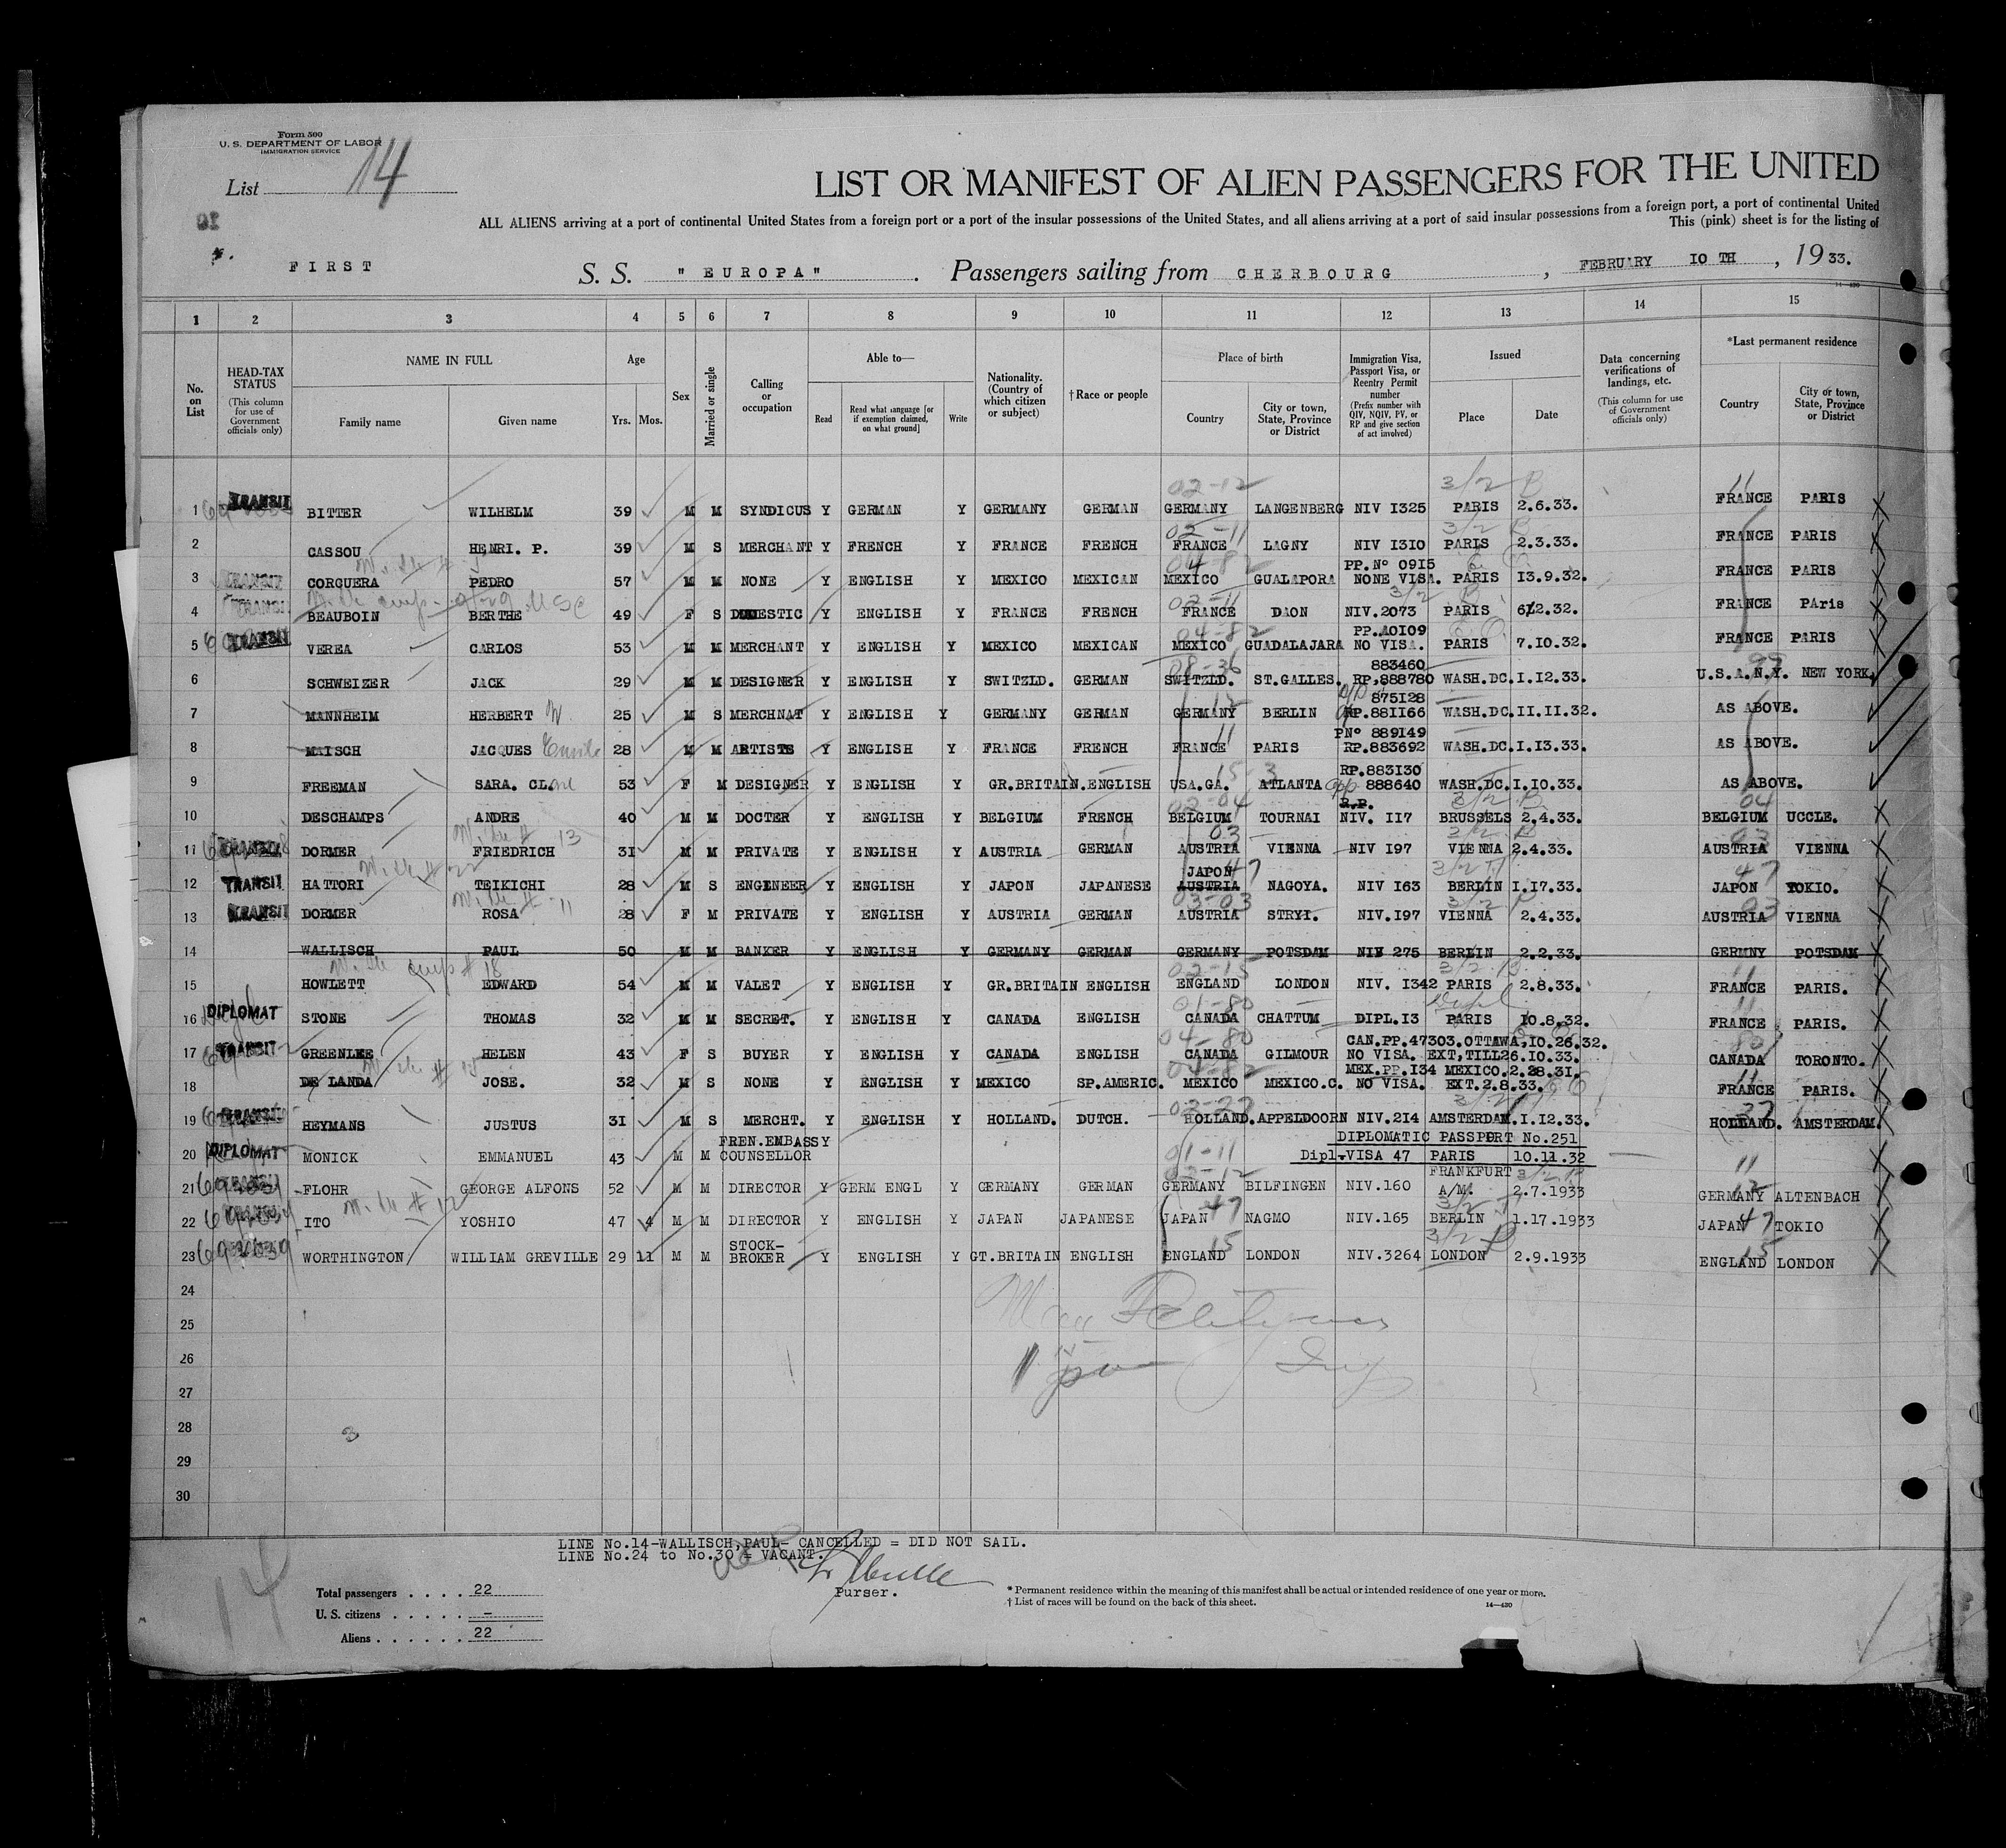 Form 500
U. S. DEPARTMENT OF LABOR
IMMIGRATION SERVICE
List 14
LIST OR MANIFEST OF ALIEN PASSENGERS FOR THE UNITED
ALL ALIENS arriving at a port of continental United States from a foreign port or a port of the insular possessions of the United States, and all aliens arriving at a port of said insular possessions from a foreign port, a port of continental United
This (pink) sheet is for the listing of
FIRST S. S. "EUROPA". Passengers sailing from CHERBOURG, FEBRUARY 10 TH, 1933.
14-430
1 2 3 4 5 6 7 8 9 10 11 12 13 14 15
No. on List
HEAD-TAX STATUS (This column for use of Government officials only)
NAME IN FULL Family name Given name
Age Yrs. Mos.
Sex
Married or single
Calling or occupation
Able to— Read Read what language [or if exemption claimed, on what ground] Write
Nationality. (Country of which citizen or subject)
†Race or people
Place of birth Country City or town, State, Province or District
Immigration Visa, Passport Visa, or Reentry Permit number (Prefix number with QIV, NQIV, PV, or RP and give section of act involved)
Issued Place Date
Data concerning verifications of landings, etc. (This column for use of Government officials only)
*Last permanent residence Country City or town, State, Province or District
1 TRANSIT BITTER WILHELM 39 M M SYNDICUS Y GERMAN Y GERMANY GERMAN 02-12 GERMANY LANGENBERG NIV I325 3/2 B PARIS 2.6.33. 11 FRANCE PARIS
2 CASSOU HENRI. P. 39 M S MERCHANT Y FRENCH Y FRANCE FRENCH 02-11 FRANCE LAGNY NIV I3IO 3/2 B PARIS 2.3.33. FRANCE PARIS
3 TRANSIT CORGUERA PEDRO 57 M M NONE Y ENGLISH Y MEXICO MEXICAN 04-82 MEXICO GUALAPORA PP.Nº 09I5 NONE VISA. PARIS I3.9.32. FRANCE PARIS
4 TRANSIT BEAUBOIN BERTHE 49 F S DOMESTIC Y ENGLISH Y FRANCE FRENCH 02-11 FRANCE DAON NIV.2073 3/2 B PARIS 2.32. FRANCE PAris
5 TRANSIT VEREA CARLOS 53 M M MERCHANT Y ENGLISH Y MEXICO MEXICAN 04-82 MEXICO GUADALAJARA PP.IOIO9 NO VISA. PARIS 7.IO.32. FRANCE PARIS
6 SCHWEIZER JACK 29 M M DESIGNER Y ENGLISH Y SWITZLD. GERMAN 08-36 SWITZLD. ST.GALLES. 883460 RP.888780 WASH.DC.I.I2.33. 99 U.S.A.N.Y. NEW YORK.
7 MANNHEIM HERBERT W 25 M S MERCHNAT Y ENGLISH Y GERMANY GERMAN 12 GERMANY BERLIN 875I28 RP.88II66 WASH.DC.II.II.32. AS ABOVE.
8 MAISCH JACQUES Emile 28 M M ARTISTE Y ENGLISH Y FRANCE FRENCH 11 FRANCE PARIS PNº 889I49 RP.883692 WASH.DC.I.I3.33. AS ABOVE.
9 FREEMAN SARA. CL. 53 F M DESIGNER Y ENGLISH Y GR.BRITAIN.ENGLISH 15-3 USA.GA. ATLANTA RP.883I30 app 888640 WASH.DC.I.IO.33. AS ABOVE.
R.P.
10 DESCHAMPS ANDRE 40 M M DOCTER Y ENGLISH Y BELGIUM FRENCH 02-04 BELGIUM TOURNAI NIV. II7 3/2 B BRUSSELS 2.4.33. 04 BELGIUM UCCLE.
11 TRANSIT DORMER FRIEDRICH 3I M M PRIVATE Y ENGLISH Y AUSTRIA GERMAN 03 AUSTRIA VIENNA NIV I97 3/2 B VIENNA 2.4.33. 03 AUSTRIA VIENNA
12 TRANSIT HATTORI TEIKICHI 28 M S ENGENEER Y ENGLISH Y JAPON JAPANESE JAPON 47 AUSTRIA NAGOYA. NIV I63 3/2 BERLIN I.I7.33. 47 JAPON YOKIO.
13 TRANSIT DORMER ROSA 28 F M PRIVATE Y ENGLISH Y AUSTRIA GERMAN 03-03 AUSTRIA STRYI. NIV.I97 3/2 VIENNA 2.4.33. 03 AUSTRIA VIENNA
14 WALLISCH PAUL 50 M M BANKER Y ENGLISH Y GERMANY GERMAN GERMANY POTSDAM NIV 275 BERLIN 2.2.33. GERMNY POTSDAM
15 HOWLETT EDWARD 54 M M VALET Y ENGLISH Y GR.BRITAIN ENGLISH 02-15 ENGLAND LONDON NIV. I342 3/2 B PARIS 2.8.33. 11 FRANCE PARIS.
16 DIPLOMAT STONE THOMAS 32 M M SECRET. Y ENGLISH Y CANADA ENGLISH 01-80 CANADA CHATTUM DIPL.I3 PARIS IO.8.32. 11 FRANCE PARIS.
17 TRANSIT GREENLEE HELEN 43 F S BUYER Y ENGLISH Y CANADA ENGLISH 04-80 CANADA GILMOUR CAN.PP.47303.OTTAWA,IO.26.32. NO VISA. EXT,TILL26.IO.33. 80 CANADA TORONTO.
18 DE LANDA JOSE. 32 M S NONE Y ENGLISH Y MEXICO SP.AMERIC. 04-82 MEXICO MEXICO.C. MEX.PP.I34 MEXICO.2.28.3I. NO VISA. EXT.2.8.33. 11 FRANCE PARIS.
19 TRANSIT HEYMANS JUSTUS 3I M S MERCHT. Y ENGLISH Y HOLLAND. DUTCH. 02-27 HOLLAND.APPELDOORN NIV.2I4 AMSTERDAM.I.I2.33. 27 HOLLAND. AMSTERDAM.
20 DIPLOMAT MONICK EMMANUEL 43 M M FREN.EMBASSY COUNSELLOR 01-11 DIPLOMATIC PASSPORT No.251 Dipl.VISA 47 PARIS 10.11.32 11
21 TRANSIT FLOHR GEORGE ALFONS 52 M M DIRECTOR Y GERM ENGL Y GERMANY GERMAN 02-12 GERMANY BILFINGEN NIV.160 FRANKFURT A/M. 3/2 B 2.7.1933 12 GERMANY ALTENBACH
22 ITO YOSHIO 47 4 M M DIRECTOR Y ENGLISH Y JAPAN JAPANESE 47 JAPAN NAGMO NIV.165 3/2 BERLIN 1.17.1933 JAPAN 47 TOKIO
23 WORTHINGTON WILLIAM GREVILLE 29 11 M M STOCK-BROKER Y ENGLISH Y GT.BRITAIN ENGLISH 15 ENGLAND LONDON NIV.3264 3/2 LONDON 2.9.1933 15 ENGLAND LONDON
24
25
26
27
28
29
30
LINE No.14-WALLISCH,PAUL- CANCELLED = DID NOT SAIL.
LINE No.24 to No.30 = VACANT.
Purser.
14
Total passengers . . . . 22
U. S. citizens . . . . . –
Aliens . . . . . . 22
* Permanent residence within the meaning of this manifest shall be actual or intended residence of one year or more.
† List of races will be found on the back of this sheet.
14—430